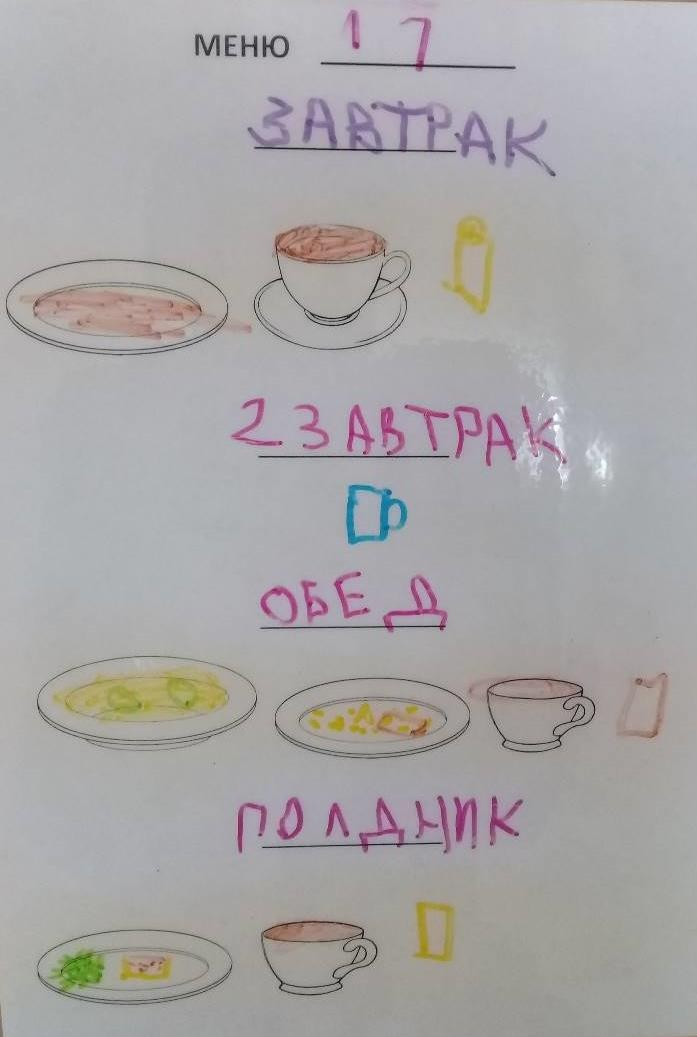 МЕНЮ 17
ЗАВТРАК
2 ЗАВТРАК
ОБЕД
ПОЛДНИК